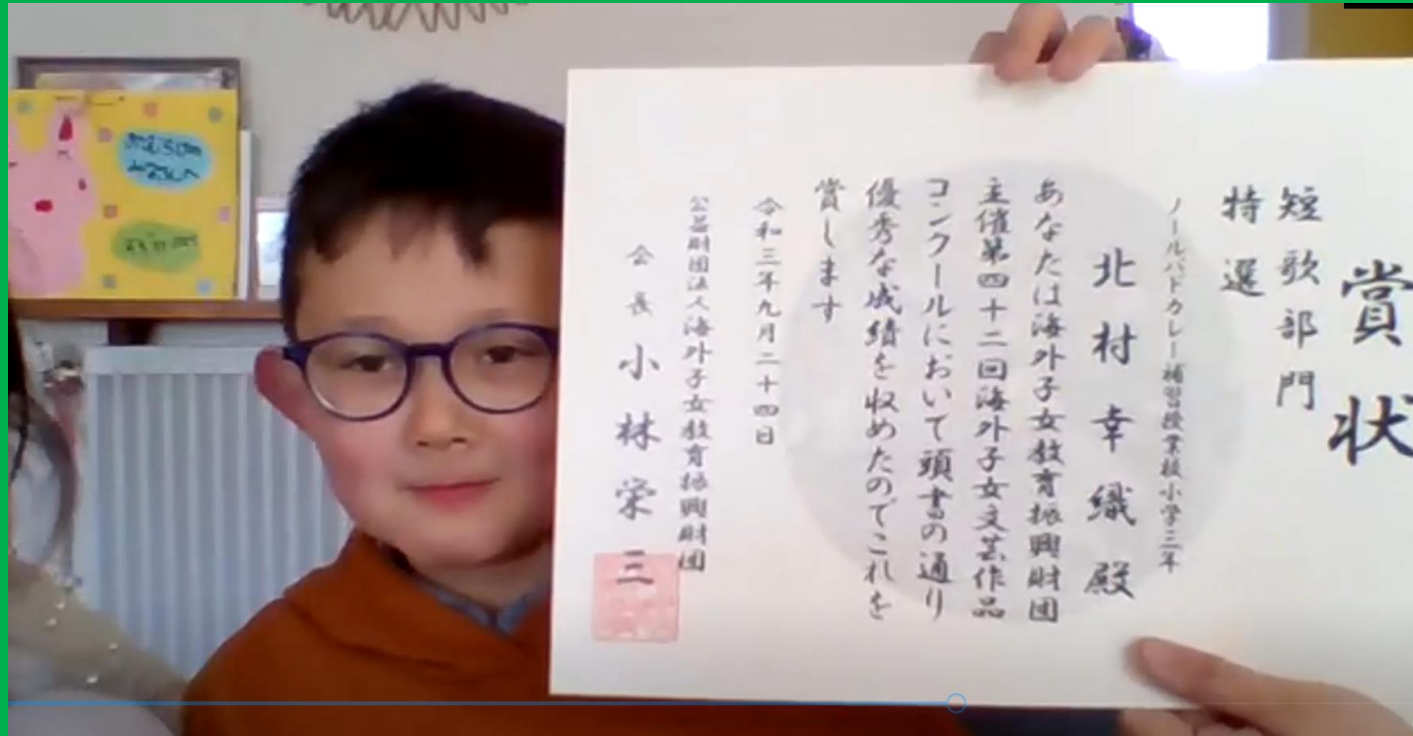 賞状
短歌部門
特選
ノールパドカレー補習授業校小学三年
北村幸織殿
あなたは海外子女教育振興財団
主催第四十二回海外子女文芸作品
コンクールにおいて頭書の通り
優秀な成績を収めたのでこれを
賞します
令和三年九月二十四日
公益財団法人海外子女教育振興財団
会長 小林栄三